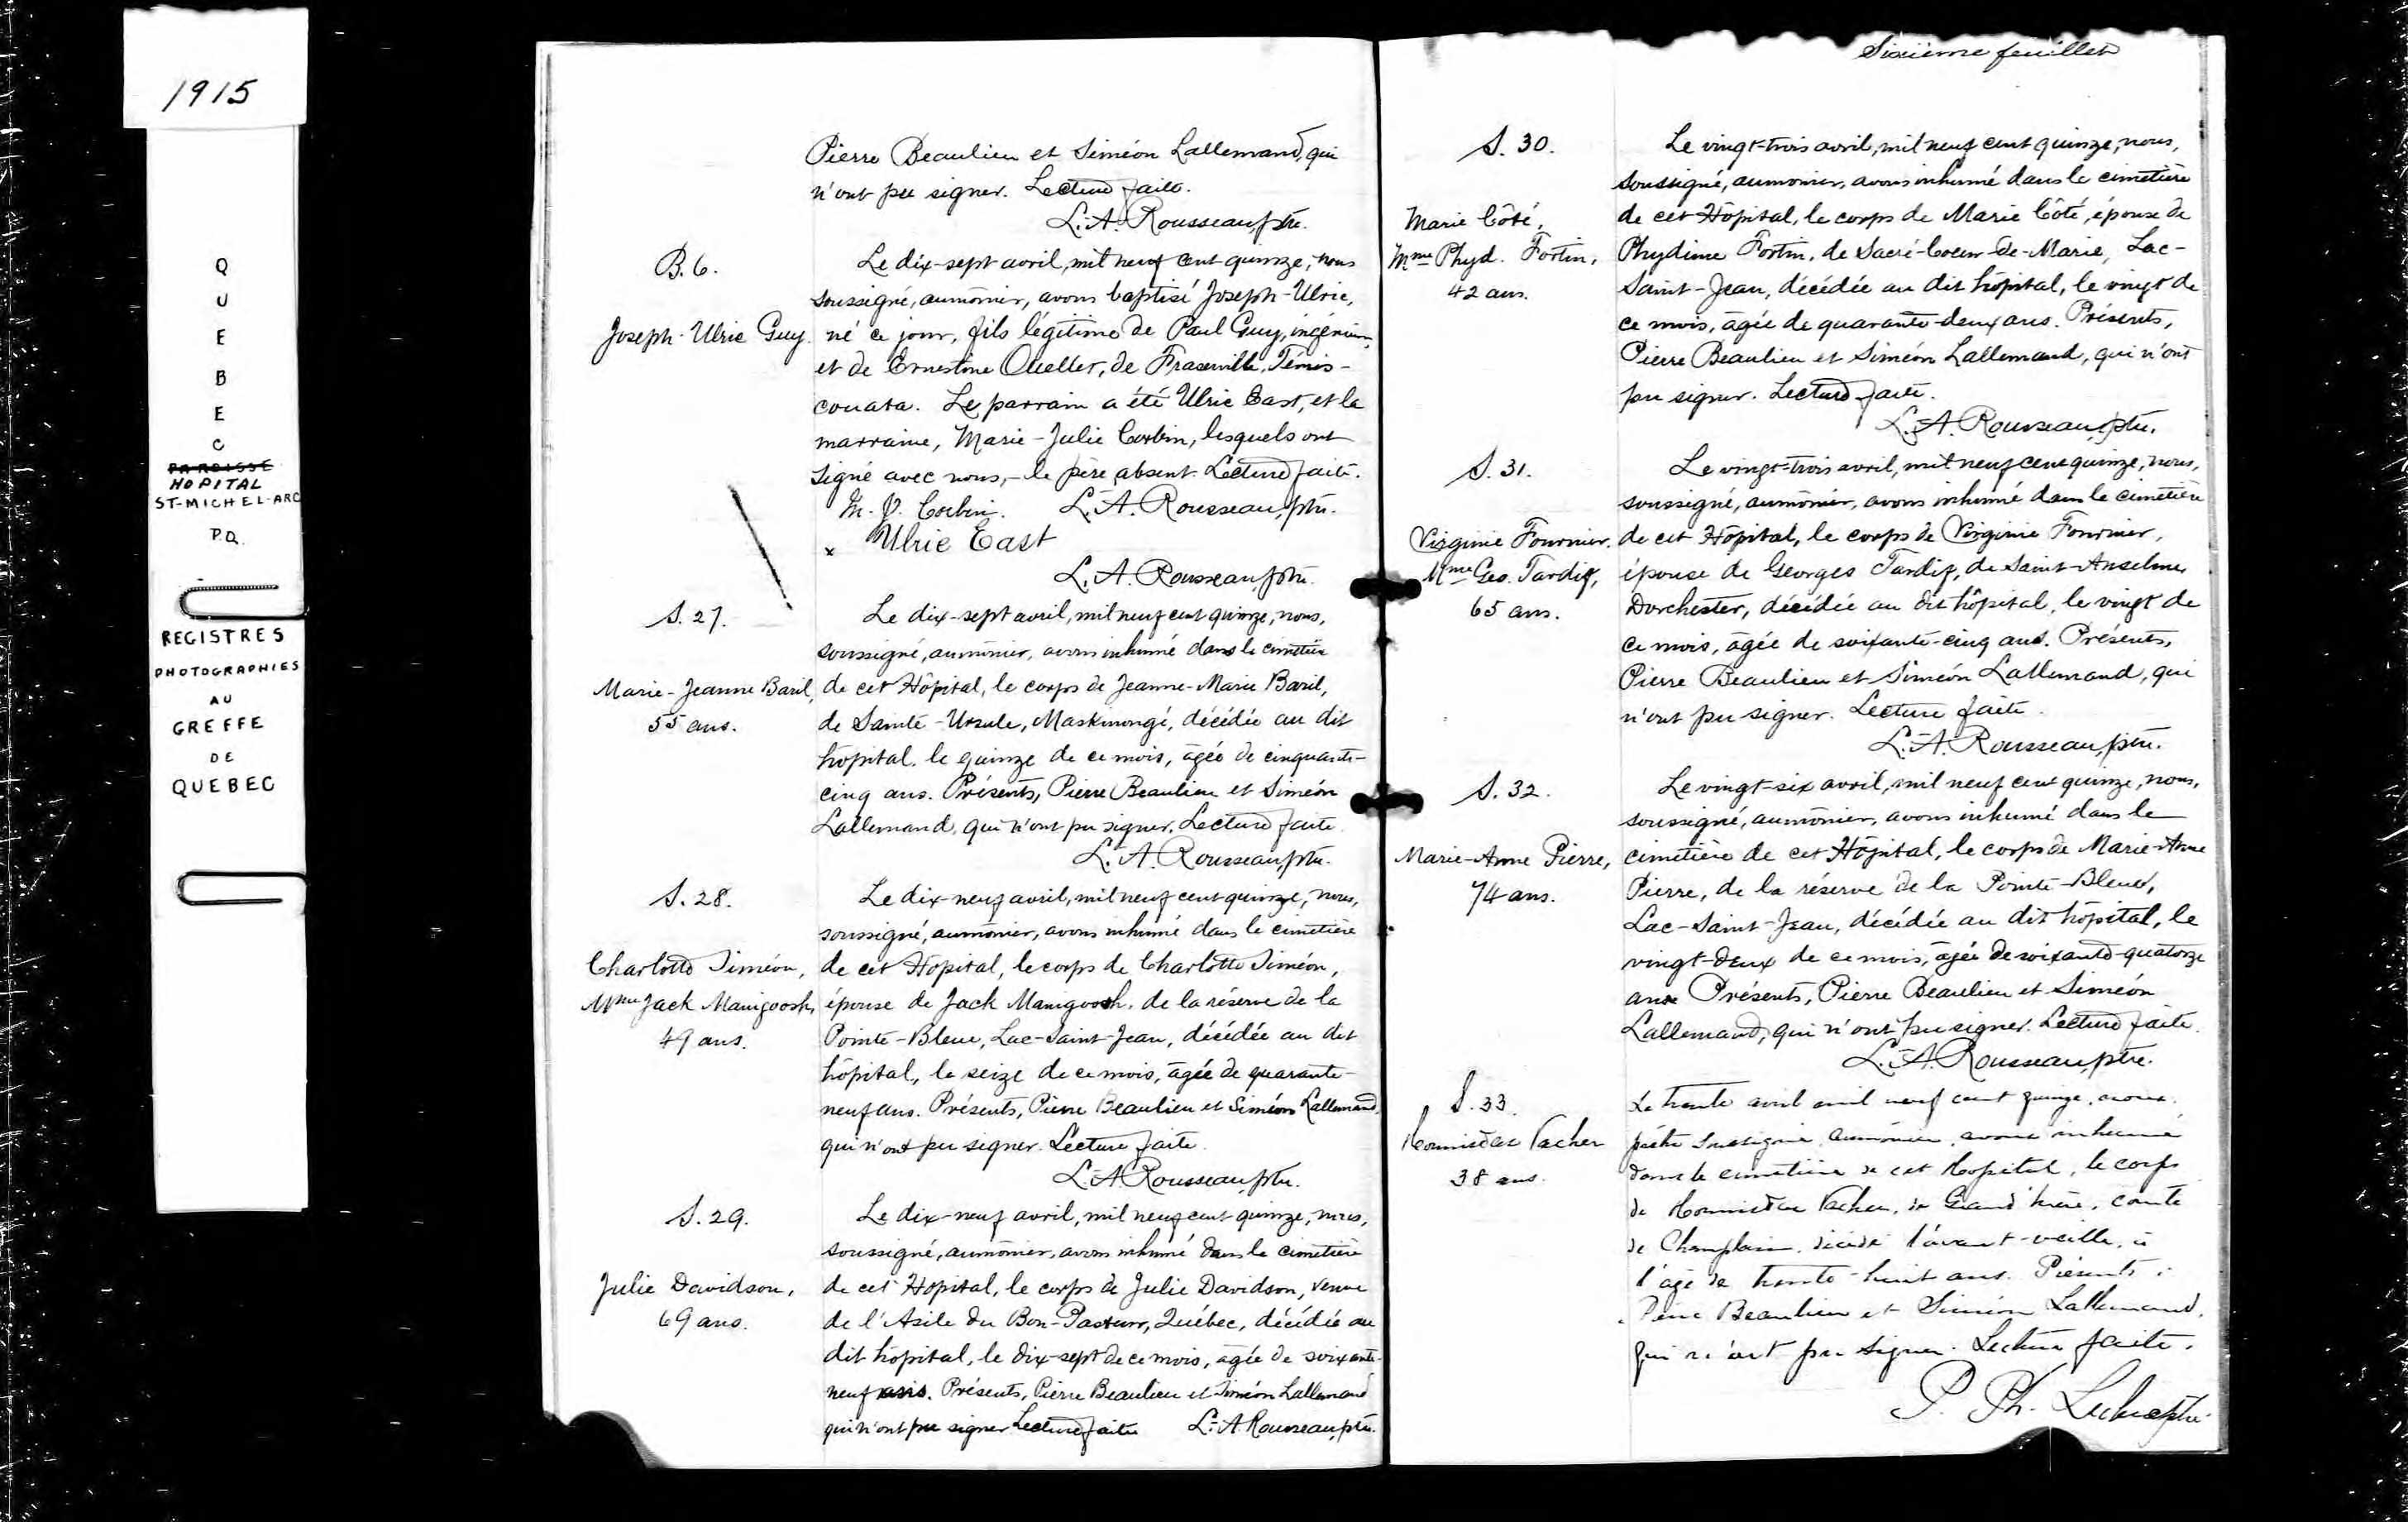 1915
Q
U
E
B
E
C
PAROISSE
HOPITAL
ST-MICHEL-ARC
P.Q.
REGISTRES
PHOTOGRAPHIES
AU
GREFFE
DE
QUEBEC
Pierre Beaulieu et Siméon Lallemand, qui
n'ont pu signer. Lecture faite.
L.-A. Rousseau, ptre.
B. 6.
Joseph-Ulric Guy.
Le dix-sept avril, mil neuf cent quinze, nous
soussigné, aumônier, avons baptisé Joseph-Ulric,
né ce jour, fils légitime de Paul Guy, ingénieur,
et de Ernestine Ouellet, de Fraserville, Témis-
couata. Le parrain a été Ulric East, et la
marraine, Marie-Julie Corbin, lesquels ont
signé avec nous, - le père absent. Lecture faite.
M. J. Corbin. L.-A. Rousseau, ptre.
x Ulric East
L.-A. Rousseau, ptre.
S. 27.
Marie-Jeanne Baril,
55 ans.
Le dix-sept avril, mil neuf cent quinze, nous,
soussigné, aumônier, avons inhumé dans le cimetière
de cet Hôpital, le corps de Jeanne-Marie Baril,
de Sainte-Ursule, Maskinongé, décédée au dit
hôpital, le quinze de ce mois, âgée de cinquante-
cinq ans. Présents, Pierre Beaulieu et Siméon
Lallemand, qui n'ont pu signer. Lecture faite
L.-A. Rousseau, ptre.
S. 28.
Charlotte Siméon,
Mme Jack Manigoosh,
49 ans.
Le dix-neuf avril, mil neuf cent quinze, nous,
soussigné, aumônier, avons inhumé dans le cimetière
de cet Hôpital, le corps de Charlotte Siméon,
épouse de Jack Manigoosh, de la réserve de la
Pointe-Bleue, Lac-Saint-Jean, décédée au dit
hôpital, le seize de ce mois, âgée de quarante-
neuf ans. Présents, Pierre Beaulieu et Siméon Lallemand,
qui n'ont pu signer. Lecture faite.
L.-A. Rousseau, ptre.
S. 29.
Julie Davidson,
69 ans.
Le dix-neuf avril, mil neuf cent quinze, nous,
soussigné, aumônier, avons inhumé dans le cimetière
de cet Hôpital, le corps de Julie Davidson, venue
de l'Asile du Bon-Pasteur, Québec, décédée au
dit hôpital, le dix-sept de ce mois, âgée de soixante-
neuf ans. Présents, Pierre Beaulieu et Siméon Lallemand
qui n'ont pu signer Lecture faite L.-A. Rousseau, ptre.
Sixième feuillet
S. 30.
Marie Côté,
Mme Phyd. Fortin,
42 ans.
Le vingt-trois avril, mil neuf cent quinze, nous,
soussigné, aumônier, avons inhumé dans le cimetière
de cet Hôpital, le corps de Marie Côté, épouse de
Phydime Fortin, de Sacré-Coeur-de-Marie, Lac-
Saint-Jean, décédée au dit hôpital, le vingt de
ce mois, âgée de quarante-deux ans. Présents,
Pierre Beaulieu et Siméon Lallemand, qui n'ont
pu signer. Lecture faite.
L.-A. Rousseau, ptre.
S. 31.
Virginie Fournier.
Mme Geo. Tardif,
65 ans.
Le vingt-trois avril, mil neuf cent quinze, nous,
soussigné, aumônier, avons inhumé dans le cimetière
de cet Hôpital, le corps de Virginie Fournier,
épouse de Georges Tardif, de Saint-Anselme,
Dorchester, décédée au dit hôpital, le vingt de
ce mois, âgée de soixante-cinq ans. Présents,
Pierre Beaulieu et Siméon Lallemand, qui
n'ont pu signer. Lecture faite.
L.-A. Rousseau, ptre.
S. 32.
Marie-Anne Pierre,
74 ans.
Le vingt-six avril, mil neuf cent quinze, nous,
soussigné, aumônier, avons inhumé dans le
cimetière de cet Hôpital, le corps de Marie-Anne
Pierre, de la réserve de la Pointe-Bleue,
Lac-Saint-Jean, décédée au dit hôpital, le
vingt-deux de ce mois, âgée de soixante-quatorze
ans Présents, Pierre Beaulieu et Siméon
Lallemand, qui n'ont pu signer. Lecture faite.
L.-A. Rousseau, ptre.
S. 33.
Hormisdas Vacher
38 ans.
Le trente avril mil neuf cent quinze, nous,
prêtre soussigné, aumônier, avons inhumé
dans le cimetière de cet hôpital, le corps
de Hormisdas Vacher, de Grand'mère, comté
de Champlain, décédé l'avant-veille, à
l'âge de trente-huit ans. Présents :
Pierre Beaulieu et Siméon Lallemand,
qui n'ont pu signer. Lecture faite.
P. Ph.